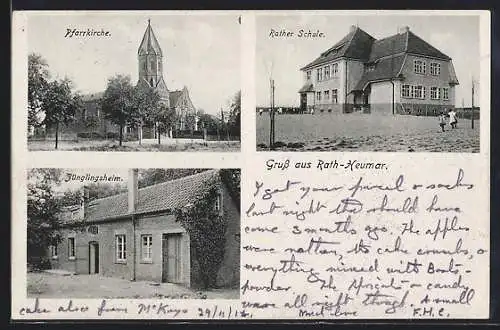 Pfarrkirche.
Rather Schule.
Jünglingsheim.
Gruß aus Rath-Heumar.
I got your parcel & socks
last night the should have
come 3 months ago. The apples
were rotten, the cake crumbs, &
everything mixed with Boots-
powder. The & candy
were all right though. A small
cake also from McKays 29/11/18 Much love F.H.C.